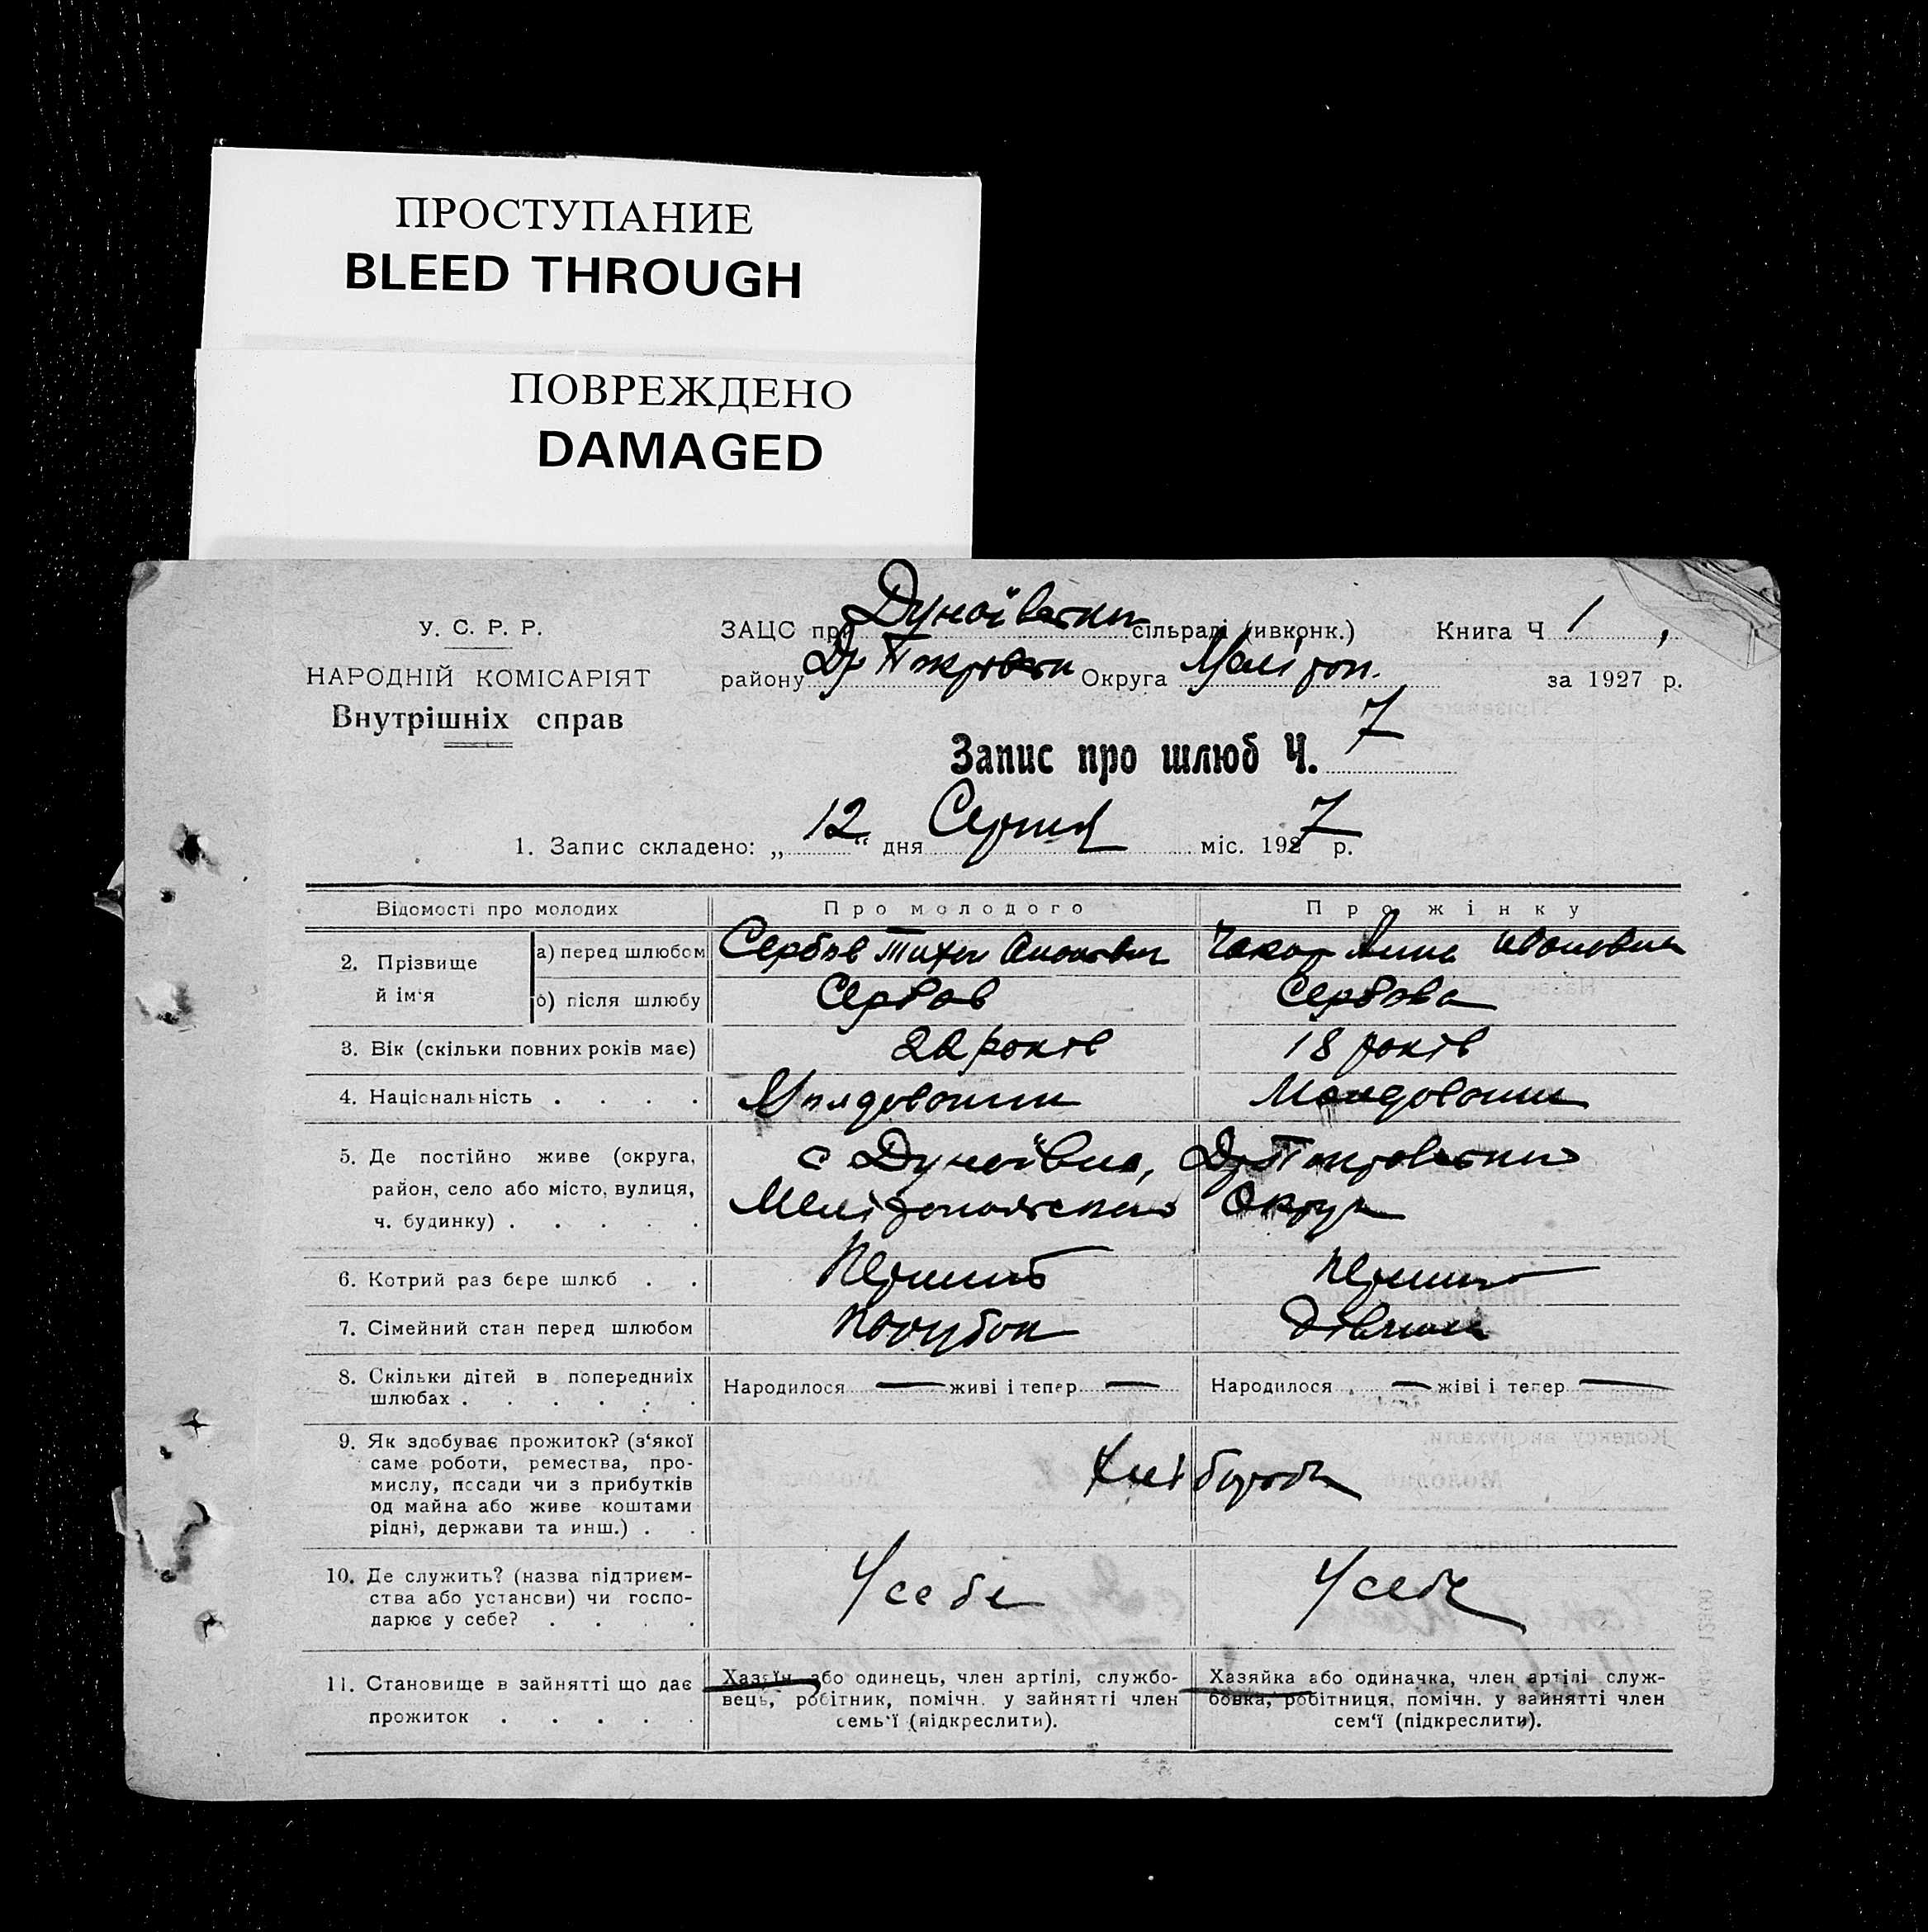 ПРОСТУПАНИЕ
BLEED THROUGH
ПОВРЕЖДЕНО
DAMAGED
У. С. Р. Р.
НАРОДНІЙ КОМІСАРІЯТ
Внутрішніх справ
ЗАЦС при Дунаївський сільраді (ивконк.) Книга Ч 1
району Др Покровськ Округа Мелітоп. за 1927 р.
Запис про шлюб Ч. 7
1. Запис складено: „12“ дня Серпня міс. 1927 р.
Відомості про молодих Про молодого Про жінку
2. Прізвище й ім‘я
а) перед шлюбом Сербов Тихон Анна Ивановна
б) після шлюбу Сербов Сербова
3. Вік (скільки повних років має) 22 років 18 років
4. Національність . . . . Молдованин Молдованин
5. Де постійно живе (округа, район, село або місто, вулиця, ч. будинку) . . . . .
с Дунаївка, Др Покровський
Мелітопольської Округи
6. Котрий раз бере шлюб . . Перший Перший
7. Сімейний стан перед шлюбом Парубок Дівчина
8. Скільки дітей в попередниіх шлюбах . . . . . . Народилося — живі і тепер — Народилося — жіві і тепер —
9. Як здобуває прожиток? (з‘якої саме роботи, ремества, промислу, посади чи з прибутків од майна або живе коштами рідні, держави та инш.) . .
Хлібороби
10. Де служить? (назва підприємства або установи) чи господарює у себе? . . . . У себе У себе
11. Становище в зайнятті що дає прожиток . . . . .
Хазяїн або одинець, член артілі, службовець, робітник, помічн. у зайнятті член семь‘ї (підкреслити).
Хазяйка або одиначка, член артілі службовка, робітниця, помічн. у зайнятті член сем‘ї (підкреслити).